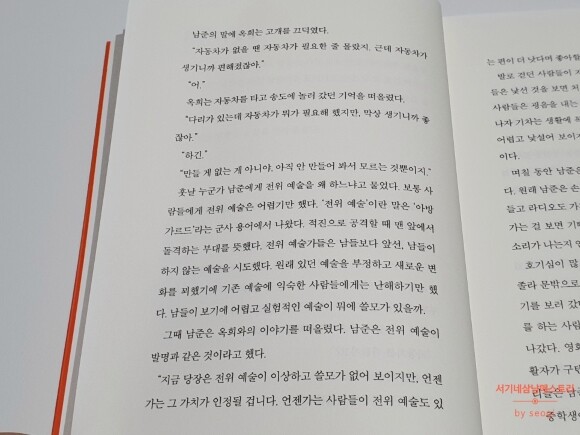 남준의 말에 옥희는 고개를 끄덕였다.
"자동차가 없을 땐 자동차가 필요한 줄 몰랐지. 근데 자동차가
생기니까 편해졌잖아."
"어."
옥희는 자동차를 타고 송도에 놀러 갔던 기억을 떠올렸다.
"다리가 있는데 자동차가 뭐가 필요해 했지만, 막상 생기니까 좋
잖아."
"하긴."
"만들 게 없는 게 아니야. 아직 안 만들어 봐서 모르는 것뿐이지."
훗날 누군가 남준에게 전위 예술을 왜 하느냐고 물었다. 보통 사
람들에게 전위 예술은 어렵기만 했다. '전위 예술'이란 말은 '아방
가르드'라는 군사 용어에서 나왔다. 적진으로 공격할 때 맨 앞에서
돌격하는 부대를 뜻했다. 전위 예술가들은 남들보다 앞선, 남들이
하지 않는 예술을 시도했다. 원래 있던 예술을 부정하고 새로운 변
화를 꾀했기에 기존 예술에 익숙한 사람들에게는 난해하기만 했
다. 남들이 보기에 어렵고 실험적인 예술이 뭐에 쓸모가 있을까.
그때 남준은 옥희와의 이야기를 떠올렸다. 남준은 전위 예술이
발명과 같은 것이라고 했다.
"지금 당장은 전위 예술이 이상하고 쓸모가 없어 보이지만, 언젠
가는 그 가치가 인정될 겁니다. 언젠가는 사람들이 전위 예술도 있
는 편이 더 낫다며 좋아할
발로 걷던 사람들이 자
들은 낯선 것을 보면 처
사람들은 굉음을 내는
나자 기차는 생활에 꼭
어렵고 낯설어 보이지
이다.
며칠 동안 남준은
다. 원래 남준은 손
들고 라디오도 가
는 걸 보면 기
소리가 나는지 안
호기심이 많
졸라 문밖으로
기를 보러 갔
를 하는 사람
나갔다. 영화
활자가 구
리들은 남
중학생
서기네삼남매스토리
by seogi